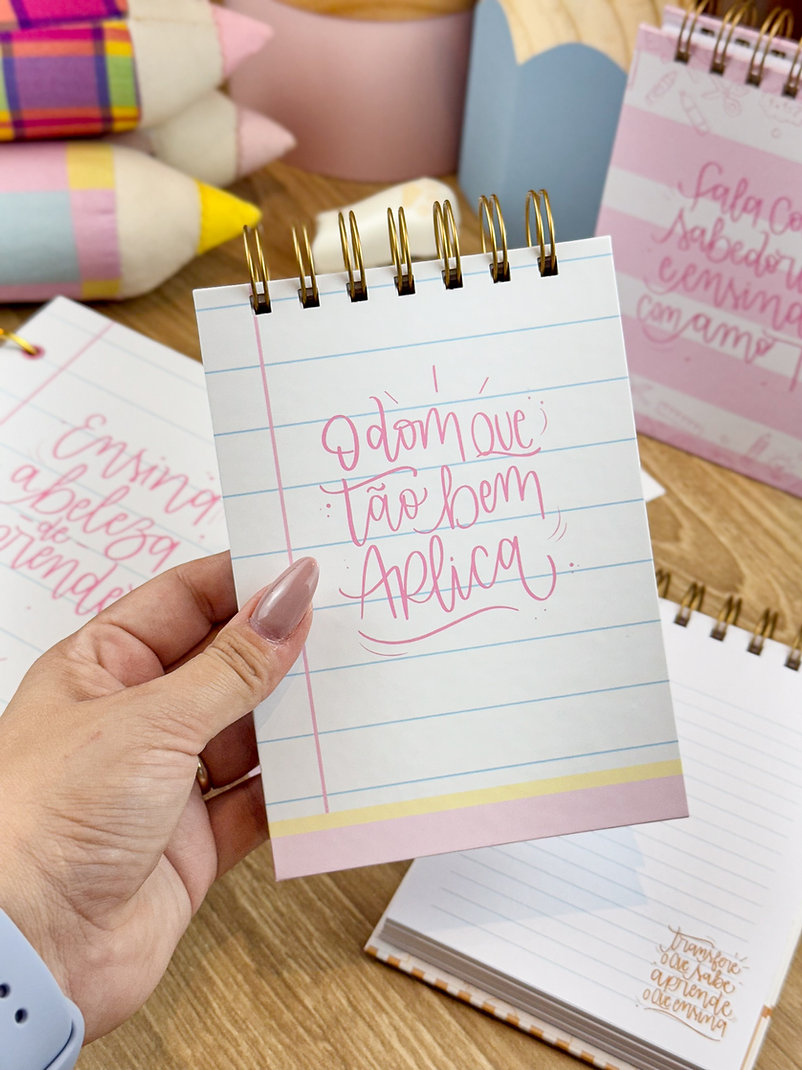 O dom que
tão bem
Aplica
Ensina
a beleza
de
Fala
sabedor
e ensina
com amo
transfere
o que sabe
aprende
o que ensina